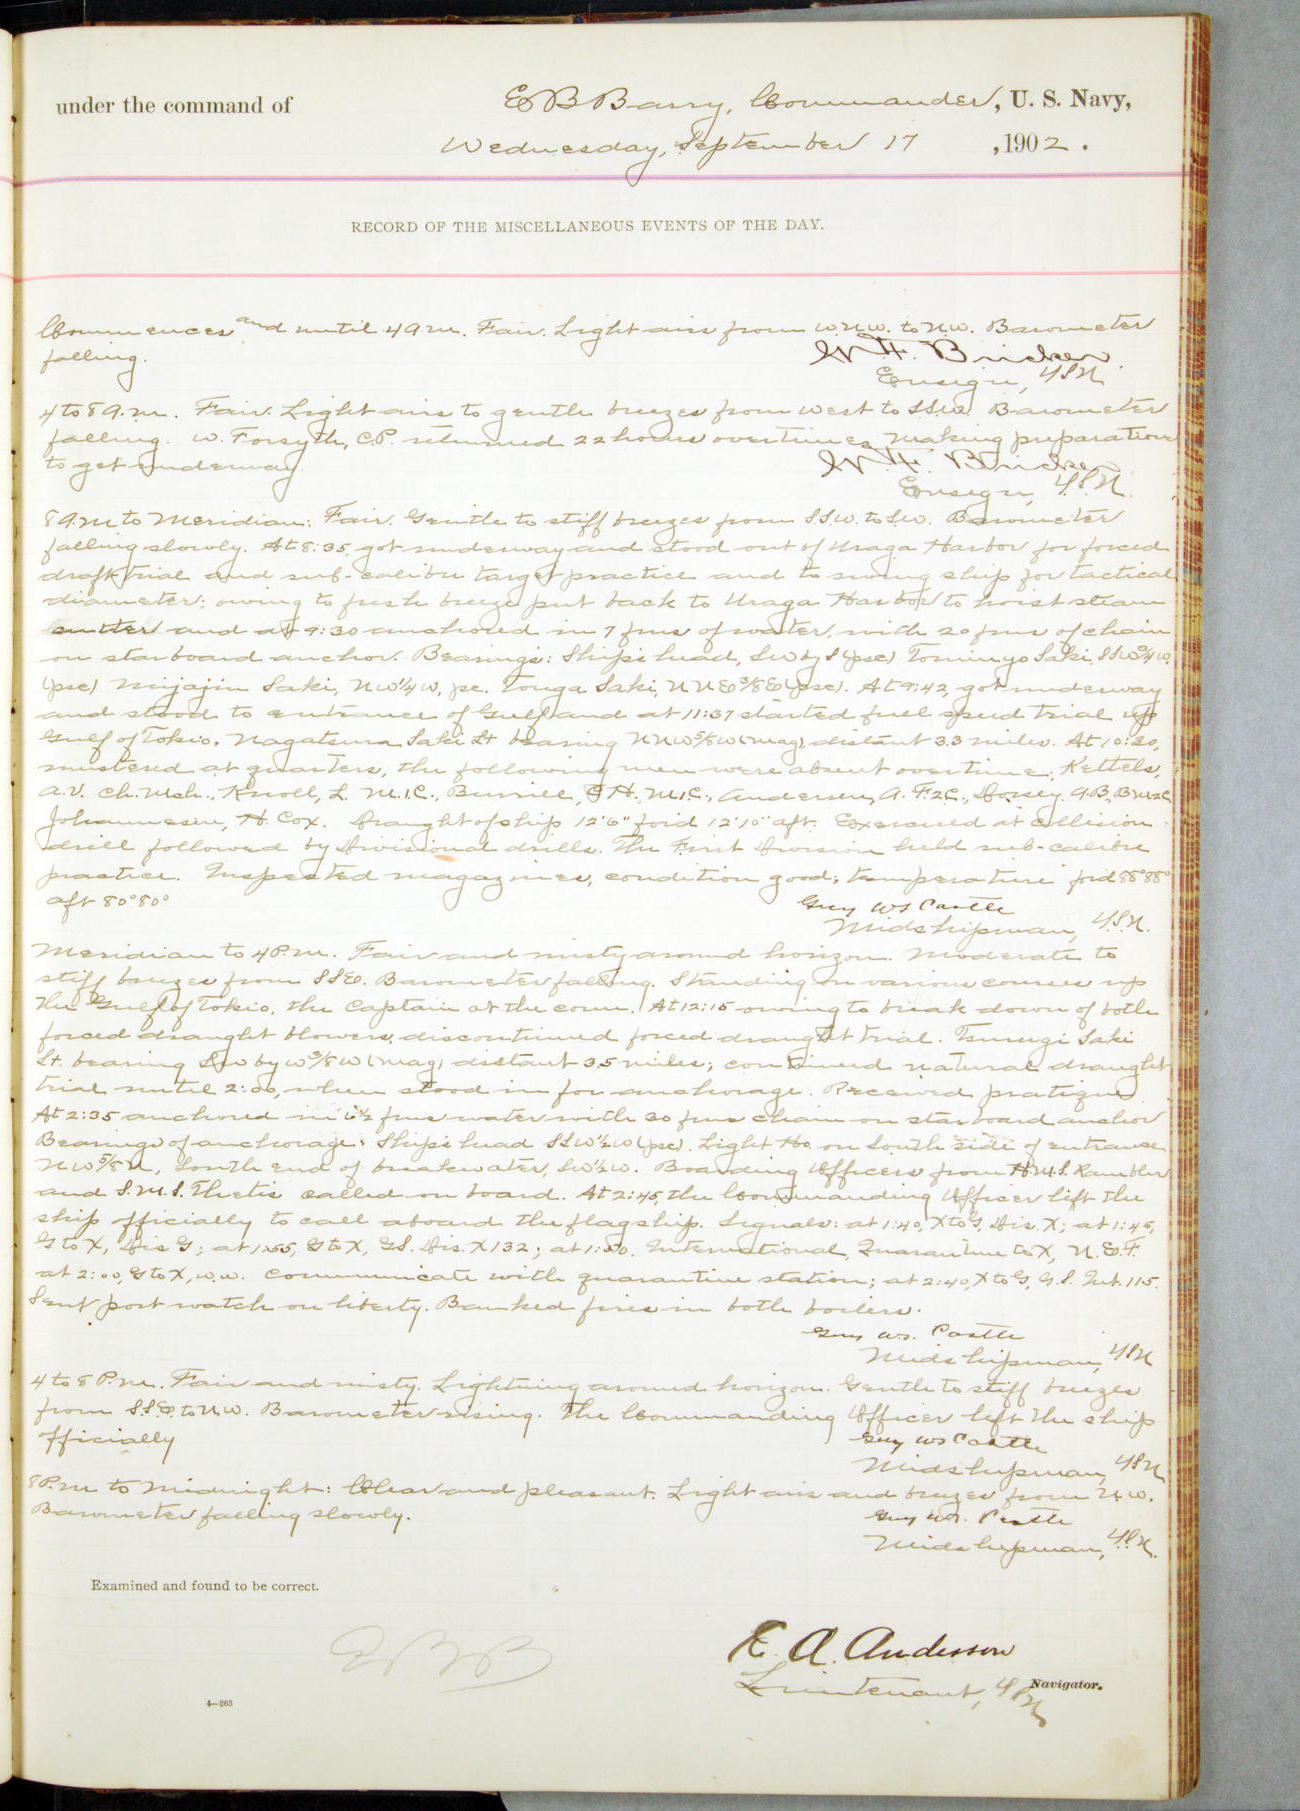 under the command of E B Barry, Commander, U. S. Navy,
Wednesday, September 17, 1902.
RECORD OF THE MISCELLANEOUS EVENTS OF THE DAY.
Commences and until 4 a.m. Fair. Light airs from W.N.W. to N.W. Barometer
falling.
W. F. Bricker.
Ensign, USN
4 to 8 a.m. Fair. Light airs to gentle breezes from West to S.S.W. Barometer
falling. W. Forsyth, C.P. returned 22 hours overtime. Making preparations
to get underway.
W. F. Bricker
Ensign, U.S.N.
8 A.M. to Meridian: Fair. Gentle to stiff breezes from S.S.W. to S.W. Barometer
falling slowly. At 8:35, got underway and stood out of Uraga Harbor for forced
draft trial and sub-calibre target practice and to swing ship for tactical
diameter; owing to fresh breeze put back to Uraga Harbor to hoist steam
cutter and at 9:30 anchored in 7 fms of water, with 20 fms of chain
on starboard anchor. Bearings: Ship's head, SW by S (psc) Tomingo Saki, SSW 3/4 W,
(psc) Mijajin Saki, NW 1/4 W, psc. Tonga Saki, NNE 3/8 E (psc). At 9:42, got underway
and stood to entrance of Gulf and at 11:37 started full speed trial up
Gulf of Tokio. Nagatsura Saki Lt bearing NNW 5/8 W (mag) distant 3.3 miles. At 10:30,
mustered at quarters, the following men were absent overtime: Kettels,
A.V. Ch. Mch., Knoll, L. M.1.C., Burrill, C H. M.1.C., Andersen, A. F.2C., Dorsey, A.B, B.M2C.
Johannesen, H. Cox. Draught of ship 12'6" for'd 12'10" aft. Exercised at collision
drill followed by Divisional drills. The First Division held sub-calibre
practice. Inspected magazines, condition good; temperature for'd 88° 88°
aft 80° 80°
Guy WS Castle
Midshipman, U.S.N.
Meridian to 4 P.m. Fair and misty around horizon. Moderate to
stiff breezes from SSE. Barometer falling. Standing on various courses up
the Gulf of Tokio, the Captain at the conn. At 12:15 owing to break down of both
forced draught blowers, discontinued forced draught trial. Tsurugi Saki
Lt. bearing SW by W 3/8 W (mag) distant 3.5 miles; continued natural draught
trial until 2:00, when stood in for anchorage. Received pratique.
At 2:35 anchored in 6 1/2 fms water with 30 fms chain on starboard anchor
Bearings of anchorage: Ship's head SSW 1/2 W (psc). Light Ho. on South side of entrance
NW 5/8 N, South end of breakwater, SW 1/2 W. Boarding Officers from H.M.S. Rambler
and S.M.S. Thetis called on board. At 2:45, the Commanding Officer left the
ship officially to call aboard the flagship. Signals: at 1:40, X to G, Dis. X; at 1:45,
G to X, Dis G; at 1:55, G to X, GS. Dis. X 132; at 1:50. International, Quarantine to X, N.E.F.
at 2:00, G to X, w.w. Communicate with quarantine station; at 2:40, X to G, G.S. Int. 115.
Sent port watch on liberty. Banked fires in both boilers.
Guy WS. Castle
Midshipman, USN
4 to 8 P.m. Fair and misty. Lightning around horizon. Gentle to stiff breezes
from S.S.E. to N.W. Barometer rising. The Commanding Officer left the ship
officially
Guy WS Castle
Midshipman, USN
8 P.m to Midnight: Clear and pleasant. Light airs and breezes from N.W.
Barometer falling slowly.
Guy WS. Castle
Midshipman, U.S.N.
Examined and found to be correct.
EBB
E. A. Anderson
Lieutenant, USN Navigator.
4—265